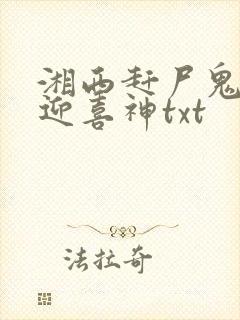 湘西赶尸鬼
迎喜神txt
法拉奇